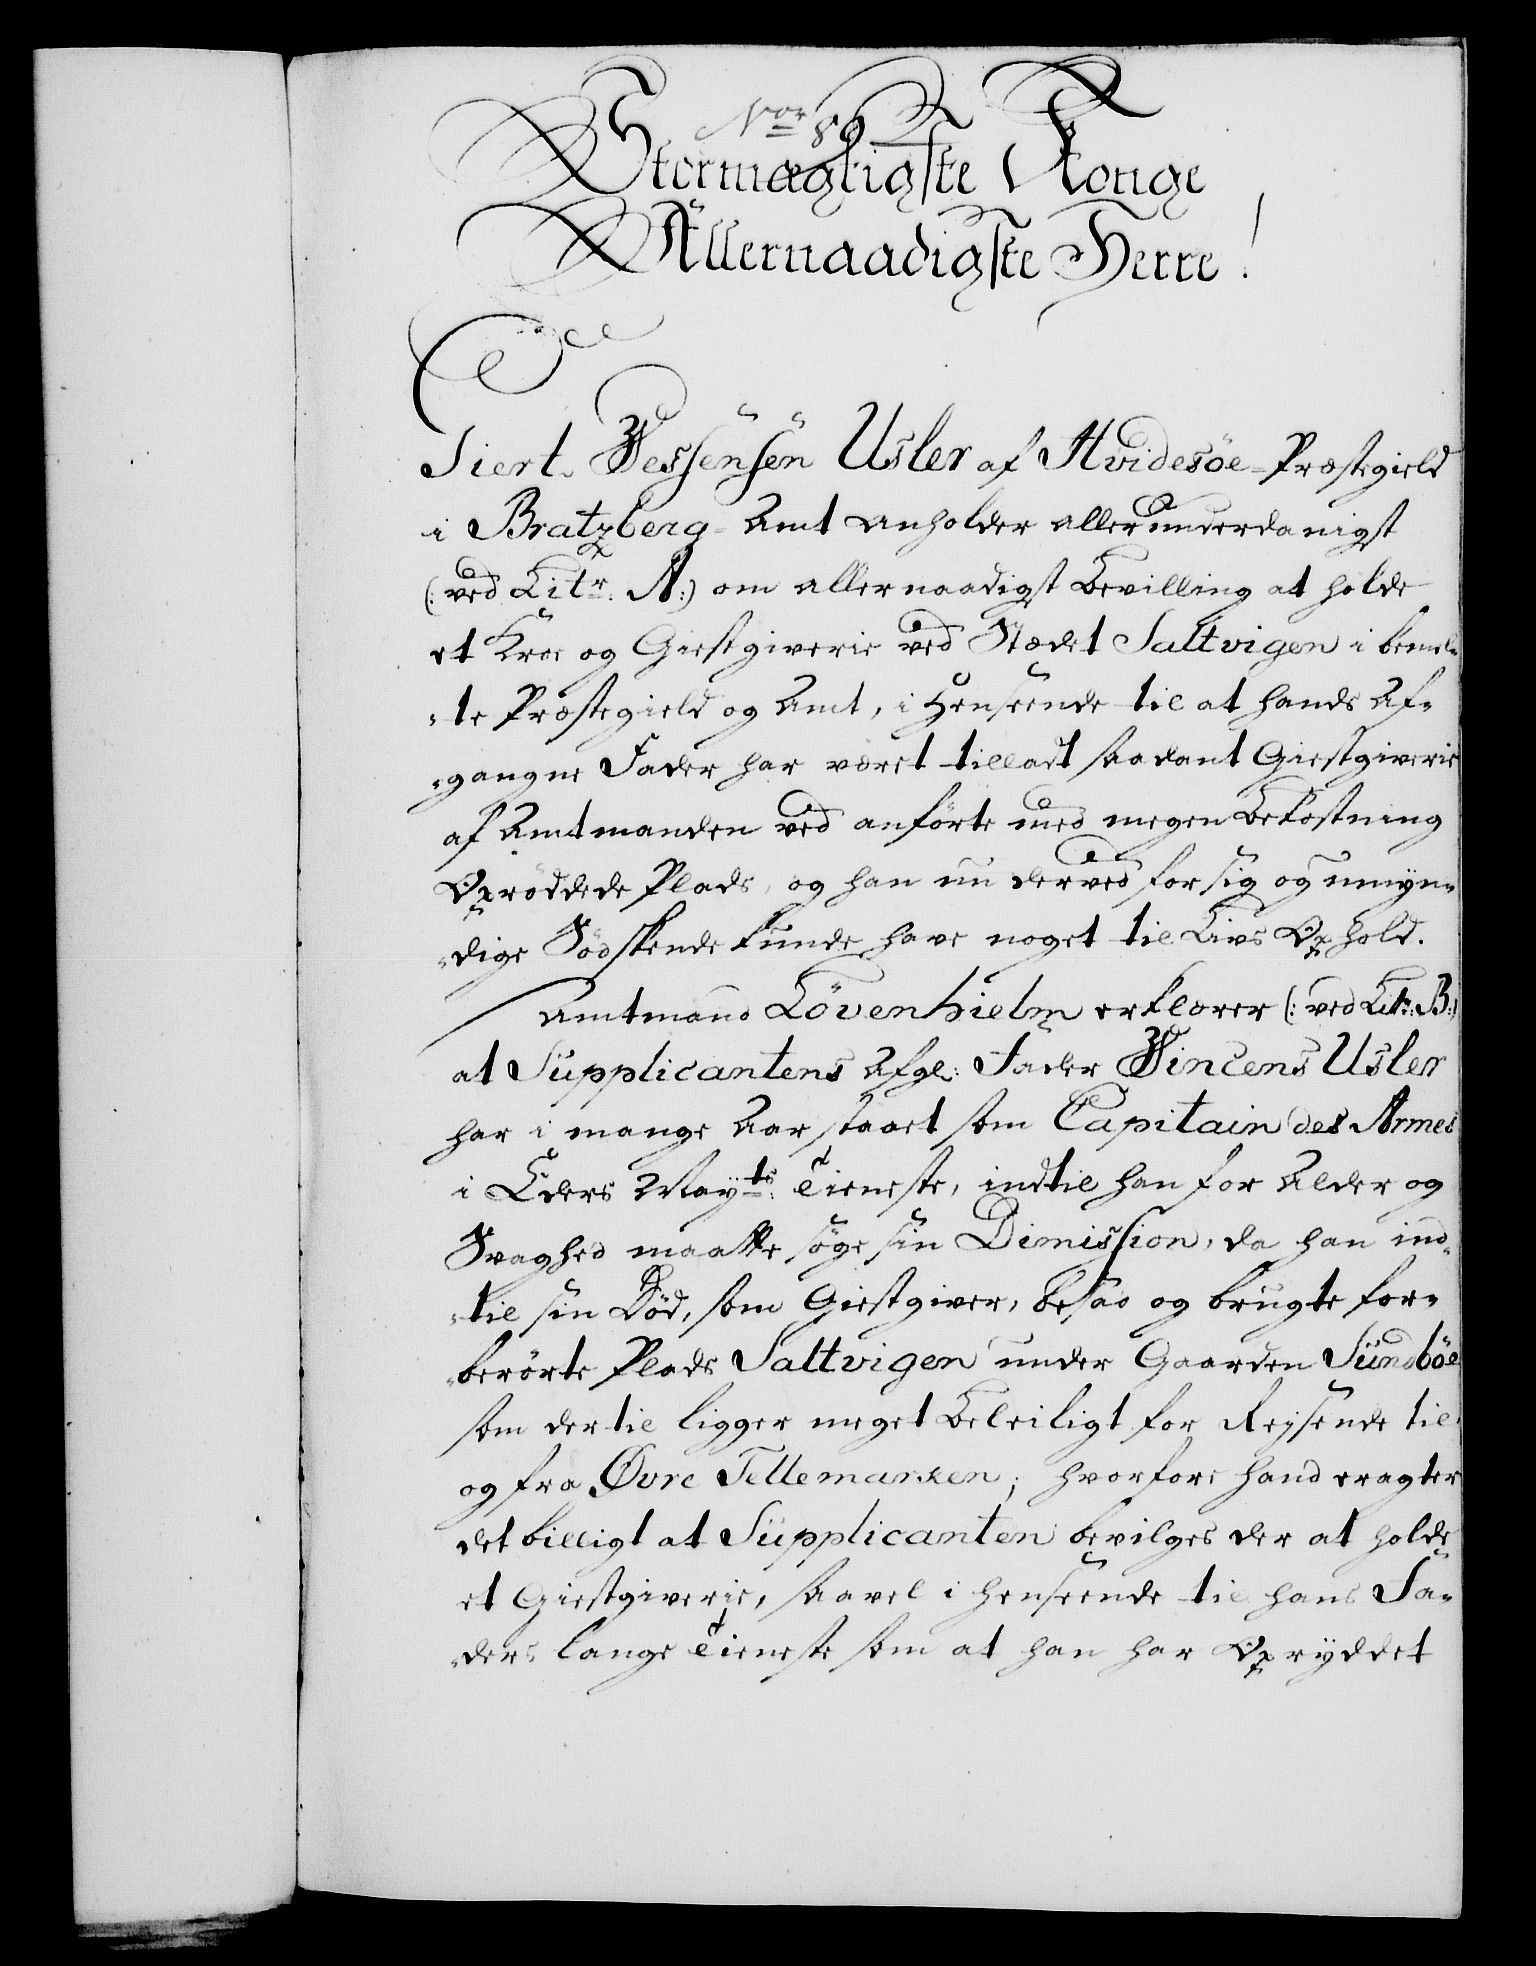 No 82
Stormægtigste Konge
Allernaadigste Herre!
Siert Wessensen Usler af Hvidesöe-Præstegield
i Bratzberg-Amt anholder allerunderdanigst
(: ved Litr. A:) om allernaadigst Bevilling at holde
et Kroe og Giestgiverie ved Stædet Saltvigen i bemel-
-te Præstegield og Amt, i Henseende til at hands Af-
-gangne Fader har været tilladt saadant Giestgiverie
af Amtmanden ved anförte med megen Bekostning
Opröddede Plads, og han nu derved for sig og umyn-
-dige Södskende kunde have noget til Livs Ophold.
Amtmand Lövenhielm erklærer (: ved Litr: B:)
at Supplicantens Afgl: Fader Wincens Usler
har i mange Aar staaet som Capitain des Armes
i Eders Mayts: Tieneste, indtil han for Alder og
Svaghed maatte söge sin Dimission, da han ind-
-til sin Död, som Giestgiver, besad og brugte for-
-berörte Plads Saltvigen under Gaarden Sundböe
som dertil ligger meget Beleiligt for Reysende til
og fra Øvre Tellemarken; hvorfore hand eragter
det billigt at Supplicanten bevilges der at holde
et Giestgiverie, saavel i henseende til hans Fa-
-ders lange Tieneste som at han har Opryddet